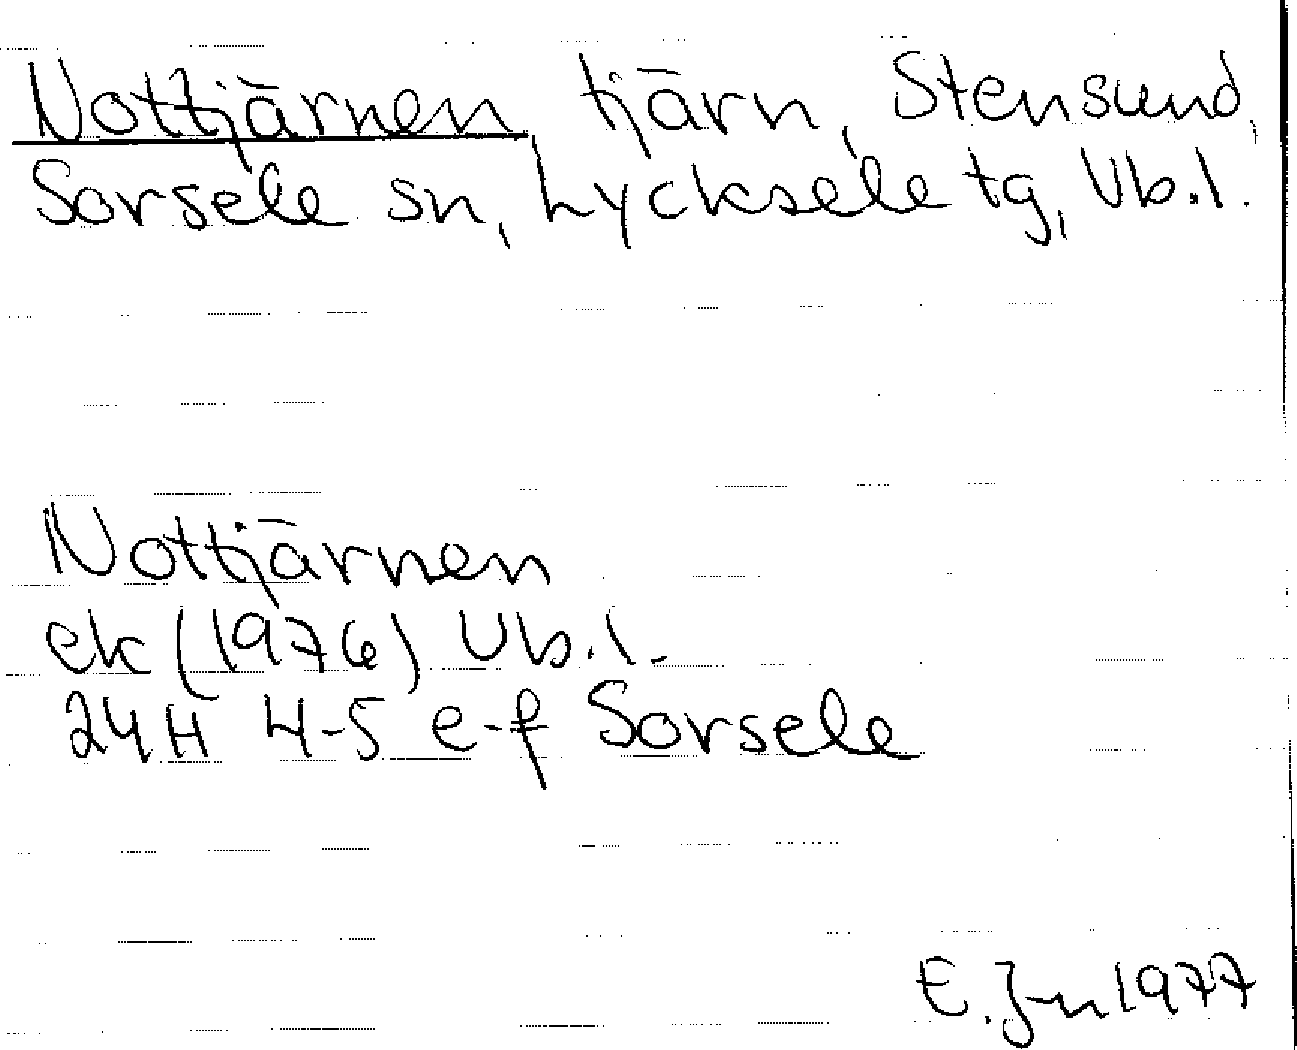 Nottjärnen, tjärn, Stensund,
Sorsele sn, Lycksele tg, Vb.l.
Nottjärnen
ek (1976) Vb.l.
24H 4-5 e-f Sorsele
E. 1977